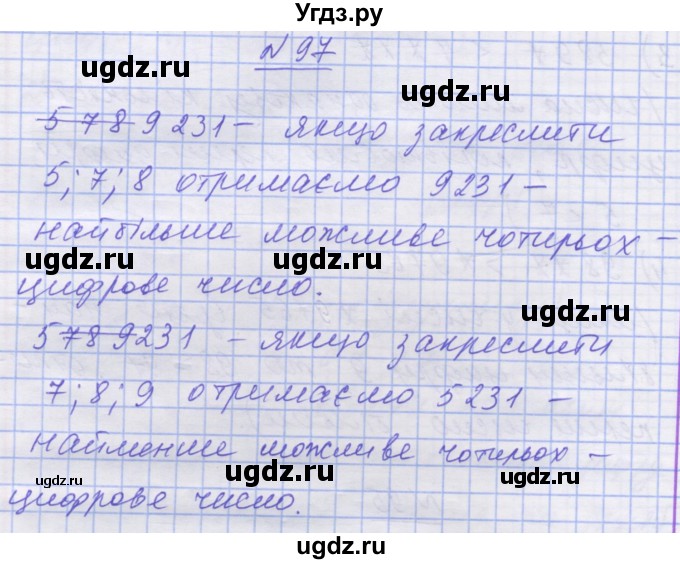 Угдз.ру
N 97
ugdz.ru ugdz.ru
5 7 8 9 231 – якщо закреслити
5; 7; 8 отримаємо 9231 –
найбільше можливе чотирьох –
ugdz.ru ugdz.ru
цифрове число.
5 7 8 9231 – якщо закреслити
7; 8; 9 отримаємо 5231 –
найменше можливе чотирьох –
ugdz.ru ugdz.ru
цифрове число.
ugdz.ru